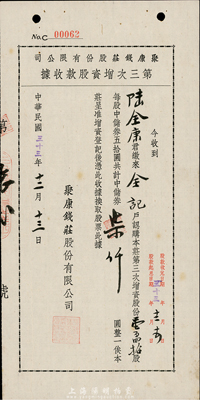 No.C 00062
司公限有份股莊錢康聚
據收款股資增次三第
今收到
陸全康君繳來全記戶認購本莊第三次增資股份壹百拾股
每股中儲券五拾圓共計中儲券柒仟圓整一俟本
莊呈准增資登記後憑此收據換取股票此據
聚康錢莊股份有限公司
中華民國三十三年十二月十三日
第
號